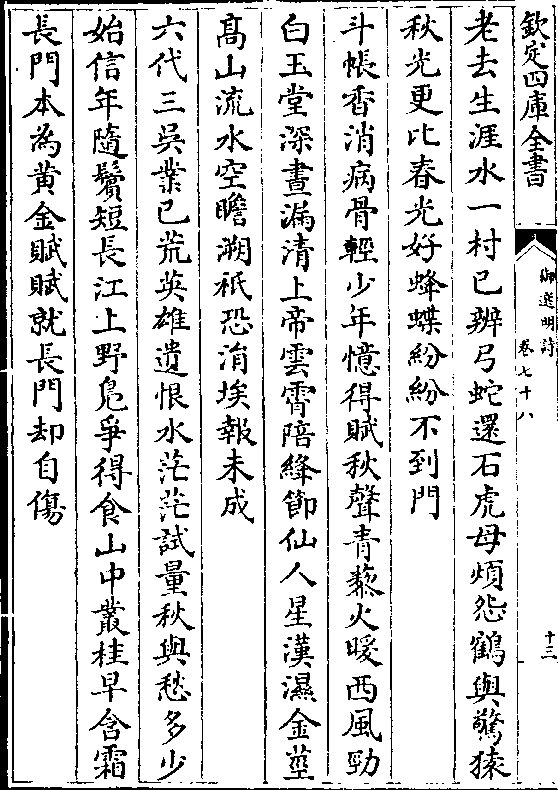 欽定四庫全書
御選明詩
卷七十八
十三
老去生涯水一村已辨弓蛇還石虎毋煩怨鶴與驚猿
秋光更比春光好蜂蝶紛紛不到門
斗帳香消病骨輕少年憶得賦秋聲青藜火暖西風勁
白玉堂深晝漏清上帝雲霄陪絳節仙人星漢濕金莖
髙山流水空瞻溯祇恐涓埃報未成
六代三吳業已荒英雄遺恨水茫茫試量秋與愁多少
始信年隨鬢短長江上野鳬爭得食山中叢桂早含霜
長門本為黄金賦賦就長門却自傷